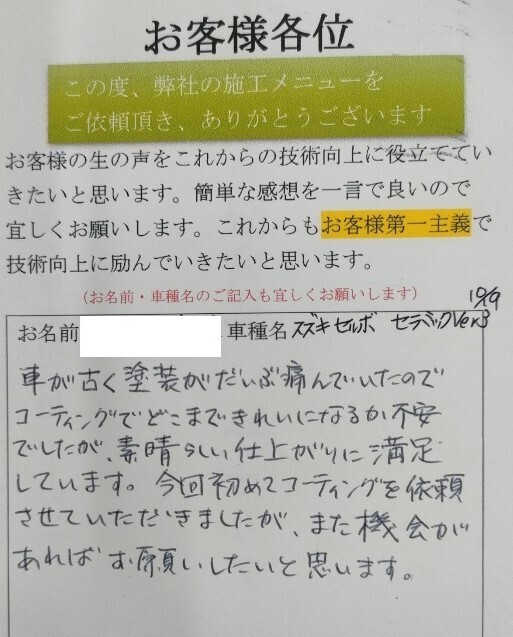 お客様各位
この度、弊社の施工メニューを
ご依頼頂き、ありがとうございます
お客様の生の声をこれからの技術向上に役立ててい
きたいと思います。簡単な感想を一言で良いので
宜しくお願いします。これからもお客様第一主義で
技術向上に励んでいきたいと思います。
(お名前・車種名のご記入も宜しくお願いします)
10/9
お名前 車種名 スズキセルボ セラミックVer3
車が古く塗装がだいぶ痛んでいたので
コーティングでどこまできれいになるか不安
でしたが、素晴らしい仕上がりに満足
しています。今回初めてコーティングを依頼
させていただきましたが、また機会が
あればお願いしたいと思います。